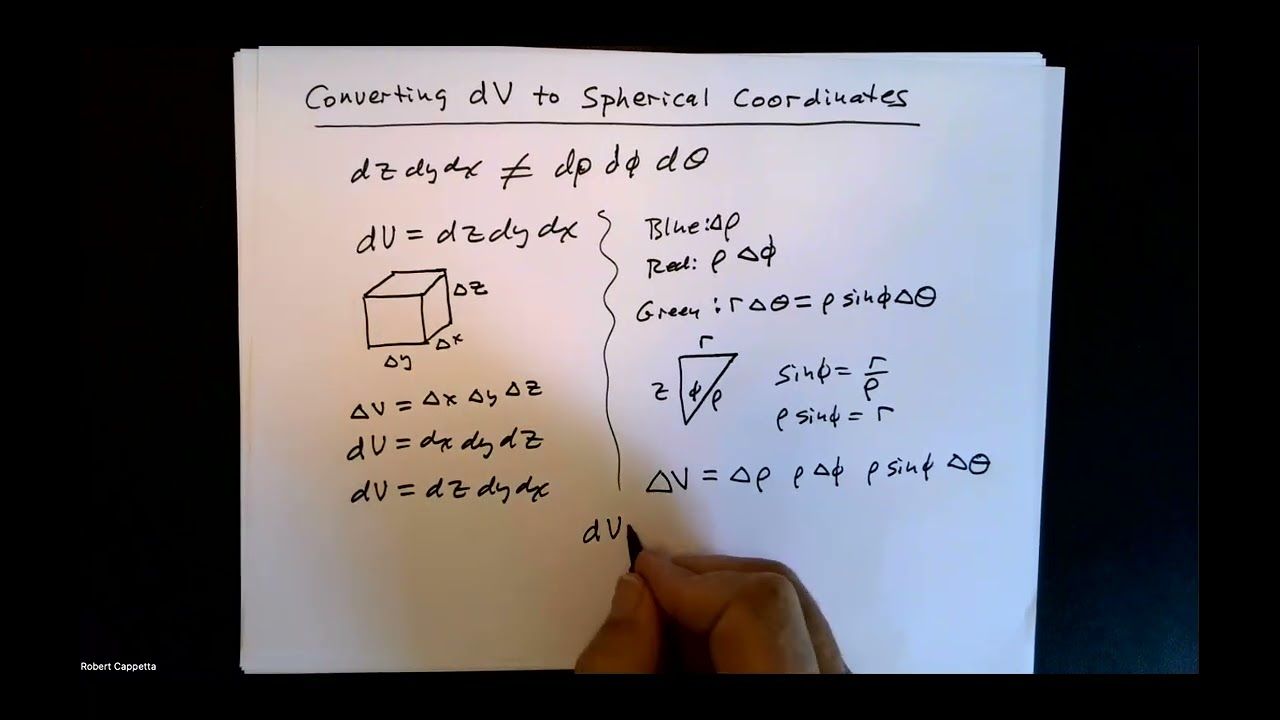 Converting dV to Spherical Coordinates
dz dy dx ≠ dρ dϕ dθ
dV = dz dy dx
Δz
Δx
Δy
ΔV = Δx Δy Δz
dV = dx dy dz
dV = dz dy dx
Blue: Δρ
Red: ρ Δϕ
Green: r Δθ = ρ sinϕ Δθ
r
z ϕ ρ
sinϕ = r/ρ
ρ sinϕ = r
ΔV = Δρ ρ Δϕ ρ sinϕ Δθ
dV
Robert Cappetta